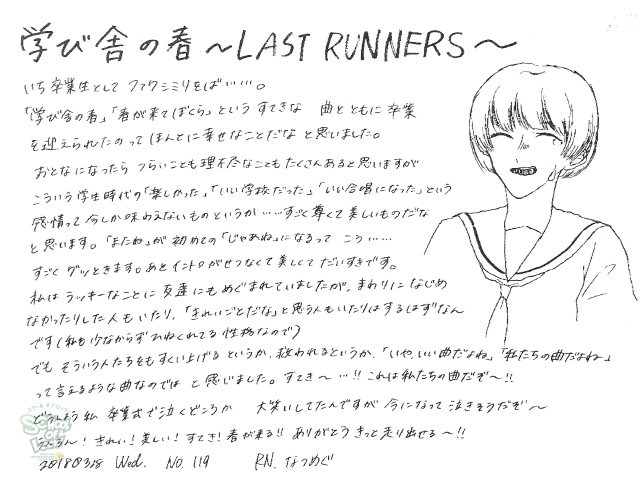 学び舎の春 ～LAST RUNNERS～
いち卒業生として ファクシミリをば……。
「学び舎の春」「春が来てぼくら」という すてきな 曲とともに卒業
を迎えられたのって ほんとに幸せなことだな と思いました。
おとなになったら つらいことも理不尽なことも たくさんあると思いますが
こういう学生時代の「楽しかった」「いい学校だった」「いい合唱になった」という
感情って今しか味わえないものというか……すごく尊くて美しいものだな
と思います。「またね」が初めての「じゃあね」になるって こう……
すごくグッときます。あとイントロがせつなくて美しくて だいすきです。
私は ラッキーなことに 友達にもめぐまれていましたが、まわりになじめ
なかったりした人もいたり、「きれいごとだな」と思う人もいたりはするはずなん
です(私も少なからず ひねくれてる性格なので)
でも そういう人たちをもすくい上げる というか、救われるというか、「いや、いい曲だよね」「私たちの曲だよね」
って言えるような曲なのでは と感じました。すてき～…!! これは私たちの曲だぞ～!!
どうしよう私 卒業式で泣くどころか 大笑いしてたんですが 今になって泣きそうだぞ～
きれい!美しい!すてき!春が来る!! ありがとう きっと走り出せる～!!
20180328 Wed. No.119 RN. なつめぐ
School of Lock!